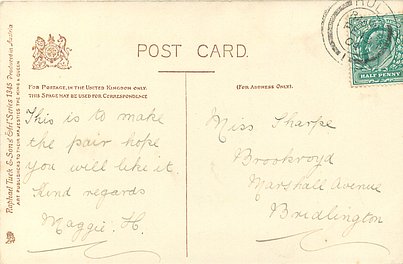 HULL
POST CARD.
HALF PENNY
FOR POSTAGE, IN THE UNITED KINGDOM ONLY,
THIS SPACE MAY BE USED FOR CORRESPONDENCE
(FOR ADDRESS ONLY).
This is to make
the pair hope
you will like it.
Kind regards
Maggie. H.
Miss Sharpe
Brookroyd
Marshall Avenue
Bridlington
Raphael Tuck & Sons' Series 1345
ART PUBLISHERS TO THEIR MAJESTIES THE KING & QUEEN